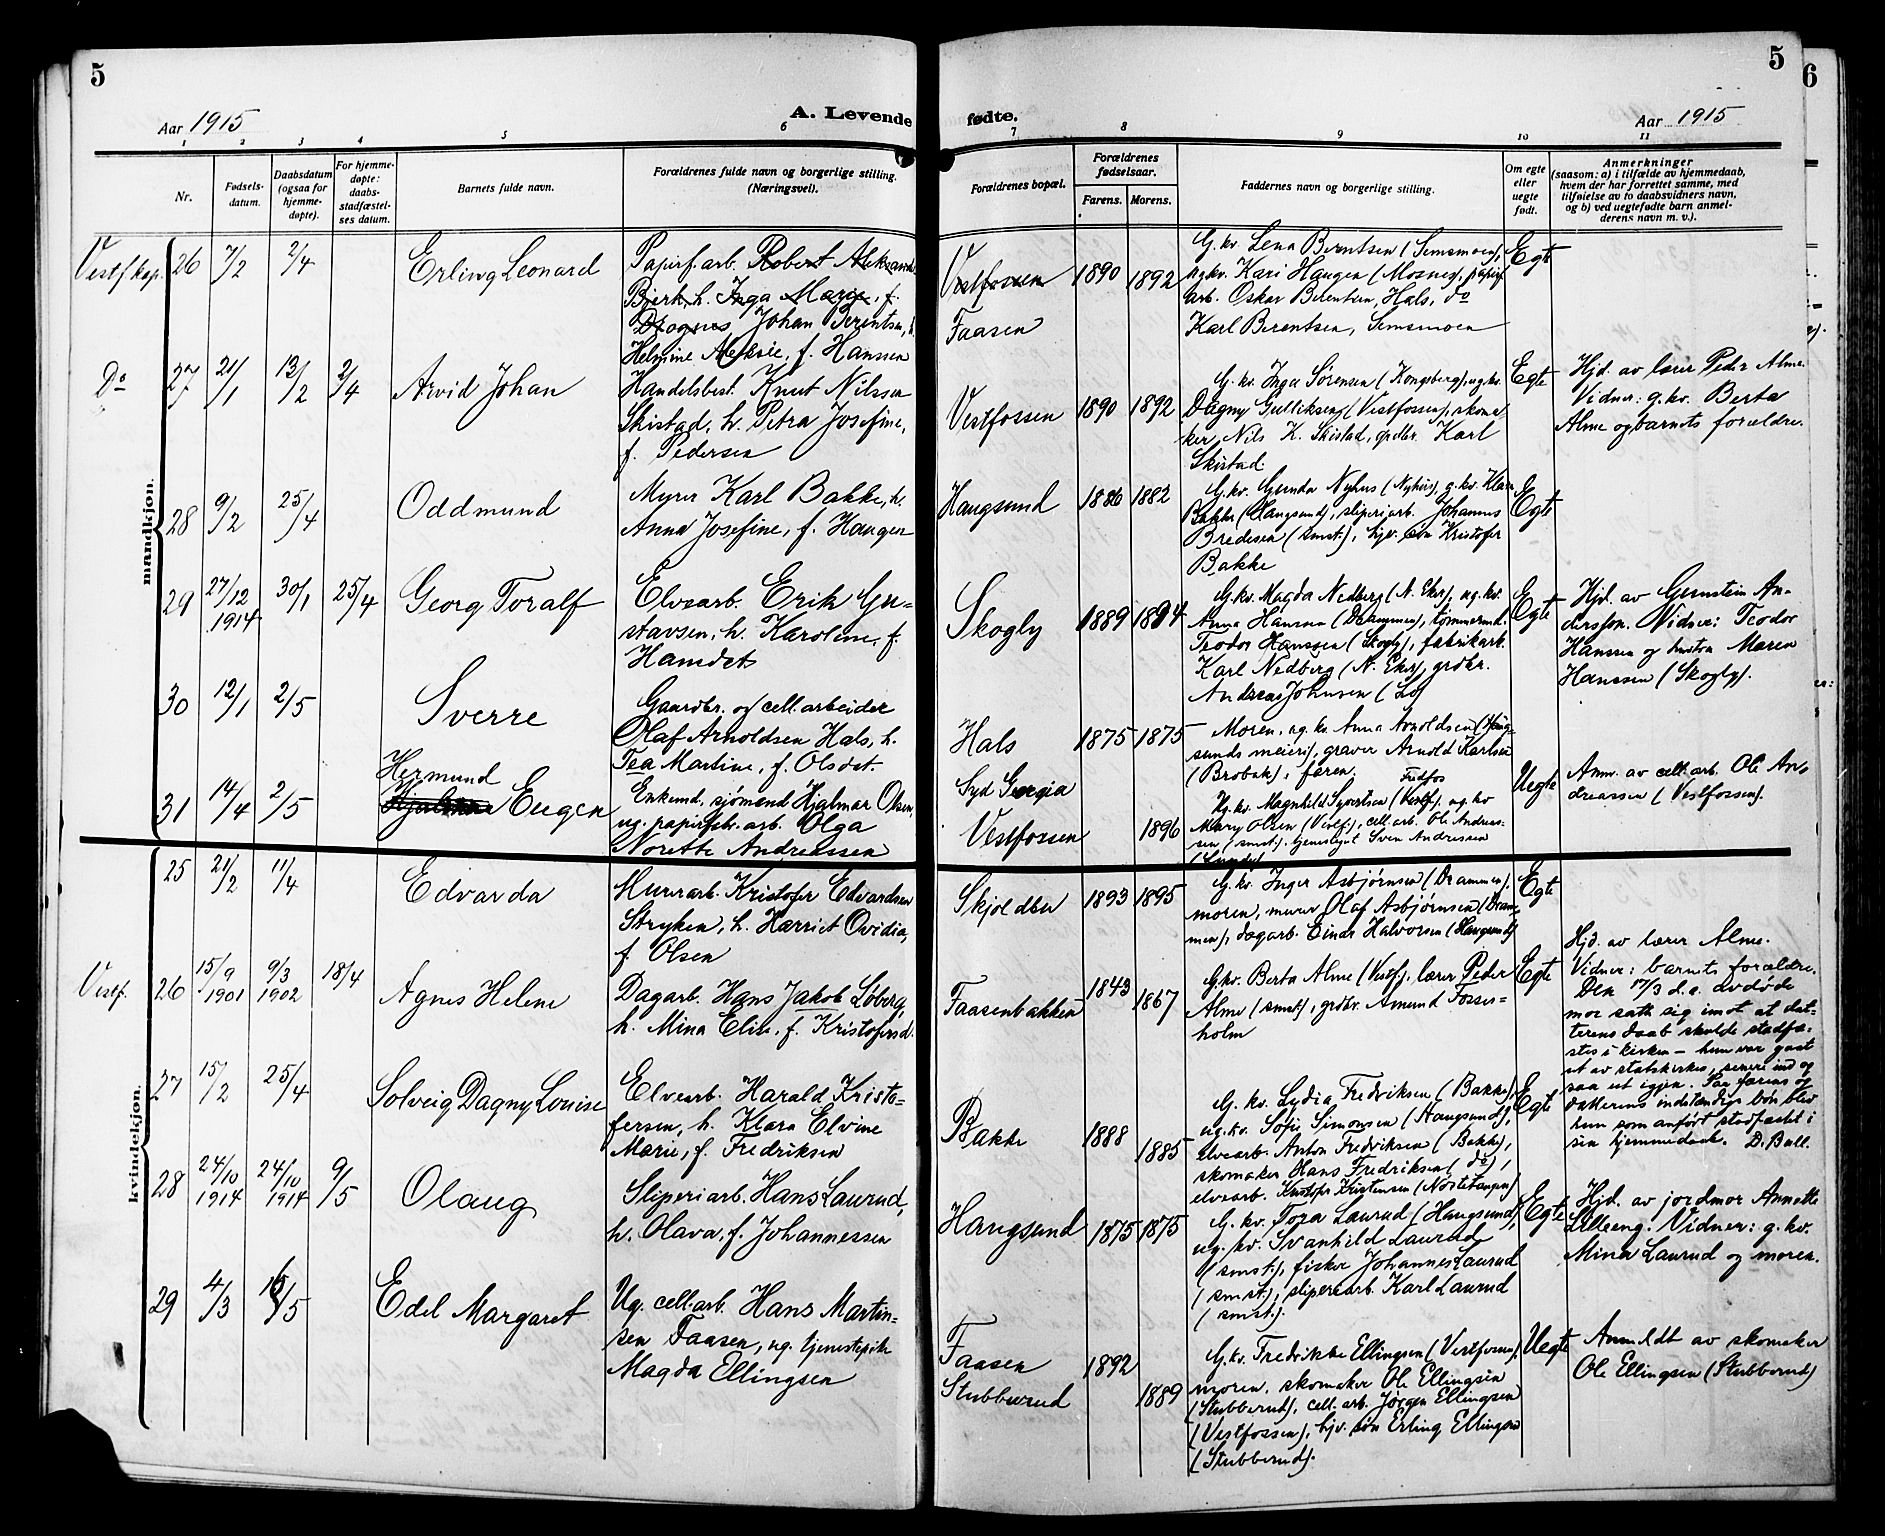 5
5
6
Aar 1915
A. Levende
fødte.
Aar 1915
1 2 3 4 5 6 7 8 9 10 11
Nr.
Fødsels-
datum.
Daabsdatum
(ogsaa for
hjemme-
døpte).
For hjemme-
døpte:
daabs-
stadfæstel-
ses datum.
Barnets fulde navn.
Forældrenes fulde navn og borgerlige stilling.
(Næringsvei).
Forældrenes bopæl.
Forældrenes
fødselsaar.
Farens. Morens.
Faddernes navn og borgerlige stilling.
Om egte
eller
uegte
født.
Anmerkninger
(saasom: a) i tilfælde av hjemmedaab,
hvem der har forrettet samme, med
tilføielse av to daabsvidners navn,
og b) ved uegtefødte barn anmel-
derens navn m. v.).
mandkjøn.
Vestf. kap. 26 7/2 2/4 Erling Leonard
Papirf.arb. Robert Aleksand.
Bjerk, h. Inga Marie, f.
Johan Berentsen, h.
Helmine Aleksie, f. Hanssen
Vestfossen
Faasen
1890 1892
G. kv. Lena Berntsen (Semsmoen),
ug.kv. Kari Haugen (Mosnes), papirf.
arb. Oskar Berentsen, Hals, do
Karl Berentsen, Semsmoen
Egte
Do 27 21/1 13/2 2/4 Arvid Johan
Handelsbest. Knut Nilssen
Skistad, h. Petra Josefine,
f. Pedersen
Vestfossen 1890 1892
G. kv. Inga Sørensen (Kongsberg), ug.kv.
Dagny Gulliksen (Vestfossen), skoma
ker Nils K. Skistad, grdbr. Karl
Skistad.
Egte
Hjd. av lærer Peder Alme.
Vidner: g. kv. Berta
Alme og barnets forældre.
28 9/2 25/4 Oddmund
Myrer Karl Bakke, h.
Anna Josefine, f. Haugen
Haugsund 1886 1882
G. kv. Gunda Nyhus (Nyhus), g. kv. Klara
Bakke (Haugsund), sliperiarb. Johannes
Bredesen (smst.), hjv. søn Kristofer
Bakke
Egte
29 27/12 1914 30/1 25/4 Georg Toralf
Elvearb. Erik Gu-
stavsen, h. Karoline, f.
Skogly 1889 1894
G. kv. Magda Nedberg (N. Eker), ug. kv.
Anna Hansen (Drammen), tømmerm.
Teodor Hanssen (Skogly), fabrikarb.
Karl Nedberg (N. Eker), grdbr.
Andreas Johnsen (Lo)
Egte
Hjd. av Gernstein An-
dersson. Vidner: Teodor
Hanssen og hustru Maren
Hanssen (Skogly).
30 12/1 2/5 Sverre
Gaardbr. og cell.arbeider
Olaf Arnoldsen Hals, h.
Tea Martine, f. Olsdat.
Hals 1875 1875
Moren, ug. kv. Anna Arnoldsen (Haug-
sunds meieri), graver Arnold Karlsen
(Brobak), faren.
31 14/4 2/5
Hermund
Eugen
Enkemd. sjømand Hjalmar Olsen,
ug. papirfabr. arb. Olga
Norette Andreassen
Syd Georgia
Vestfossen
1896
Ug. kv. Magnhild Syvertsen (Vestf.), ug. kv
Fredfos
Mary Olsen (Vestf.), cell.arb. Ole Andreas-
sen (smst.), tjenestegut Sven Andreassen
Uegte
Anm. av cell.arb. Ole An-
dreassen (Vestfossen).
kvindekjøn.
25 21/2 11/4 Edvarda
Murerarb. Kristofer Edvardsen
Stryken, h. Harriet Ovidia,
f. Olsen
Skjoldbu 1893 1895
G. kv. Inger Asbjørnsen (Drammen),
moren, murer Olaf Asbjørnsen (Dram-
men), dagarb. Einar Halvorsen (Haugsund)
Egte
Vestf. 26 15/9 1901 9/3 1902 18/4 Agnes Helene
Dagarb. Hans Jakob Løberg,
h. Mina Elise, f. Kristofersd.
Faasenbakken 1843 1867
G.kv. Berta Alme (Vestf.), lærer Peder
Alme (smst.), grdbr. Amund Fosses-
holm
Egte
Hjd. av lærer Alme.
Vidner: barnets forældre.
Den 17/3 d. a. avdøde
mor satte sig imot at dat-
terens daab skulde stadfæ-
stes i kirken – hun var gaat
ut av statskirken, senere ind og
saa ut igjen. Paa farens og
datterens indstændige bøn blev
hun som anført stadfæstet i
sin hjemmedaab. D. Ball.
27 15/2 25/4 Solveig Dagny Louise
Elvearb. Harald Kristo-
fersen, h. Klara Elvine
Marie, f. Fredriksen
Bakke 1888 1885
G. kv. Lydia Fredriksen (Bakke),
ug. kv. Sofie Simonsen (Haugsund),
elvearb. Anton Fredriksen (Bakke),
skomaker Hans Fredriksen (do),
elvearb. Kristofer Kristensen (Nøstetangen)
Egte
28 24/10 1914 24/10 1914 9/5 Olaug
Sliperiarb. Hans Laurud,
h. Olava, f. Johannessen
Haugsund 1875 1875
G. kv. Tora Laurud (Haugsund),
ug. kv. Svanhild Laurud
(smst.), fisker Johannes Laurud
(smst.), sliperiarb. Karl Laurud
(smst.).
Egte
Hjd. av jordmor Annette
Lilleeng. Vidner: g. kv.
Mina Laurud og moren.
29 4/3 16/5 Edel Margaret
Ug. cell.arb. Hans Martin-
sen Faasen, ug. tjenestepike
Magda Ellingsen
Faasen
Stubberud
1892 1889
G. kv. Fredrikke Ellingsen (Vestfossen),
moren, skomaker Ole Ellingsen
(Stubberud), cell.arb. Jørgen Ellingsen
(Vestfossen), hjv. søn Erling Ellingsen
(Stubberud).
Uegte
Anmeldt av skomaker
Ole Ellingsen (Stubberud)